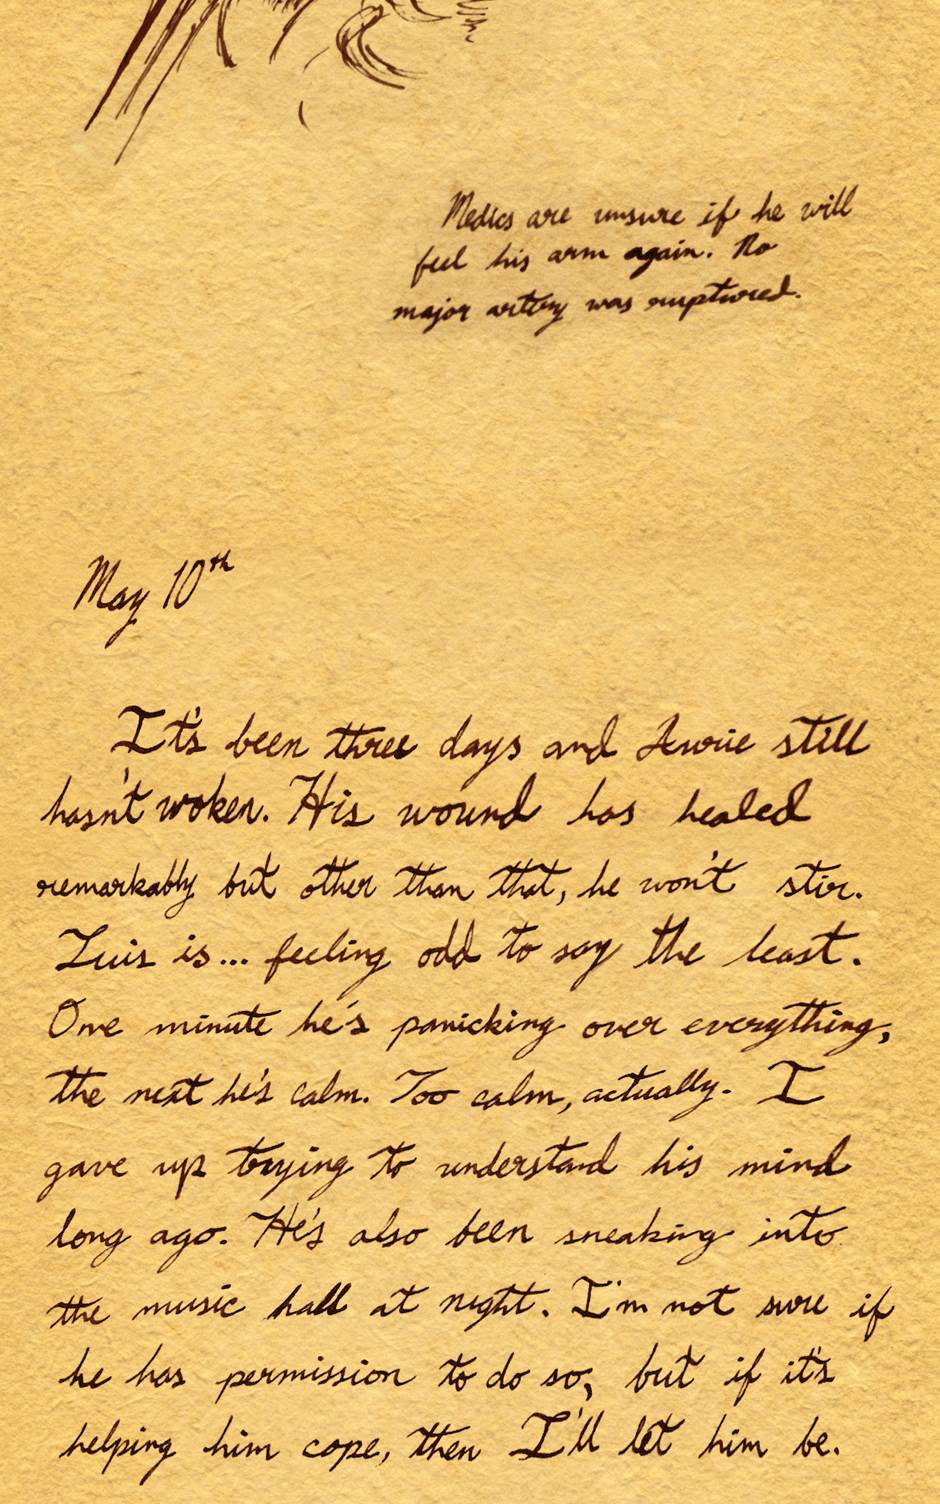 Medics are unsure if he will
feel his arm again. No
major artery was ruptured.
May 10th
It's been three days and still
hasn't woken. His wound has healed
remarkably but other than that, he won't stir.
Luis is... feeling odd to say the least.
One minute he's panicking over everything,
the next he's calm. Too calm, actually. I
gave up trying to understand his mind
long ago. He's also been sneaking into
the music hall at night. I'm not sure if
he has permission to do so, but if it's
helping him cope, then I'll let him be.